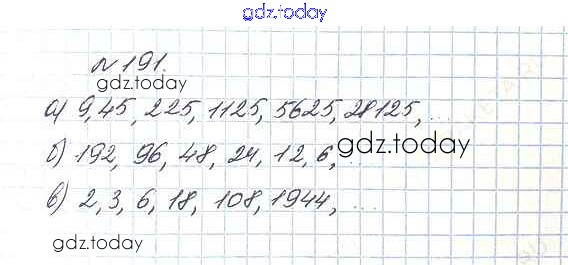 gdz.today
№191.
gdz.today
а) 9, 45, 225, 1125, 5625, 28125, ...
б) 192, 96, 48, 24, 12, 6, gdz.today
в) 2, 3, 6, 18, 108, 1944, ...
gdz.today